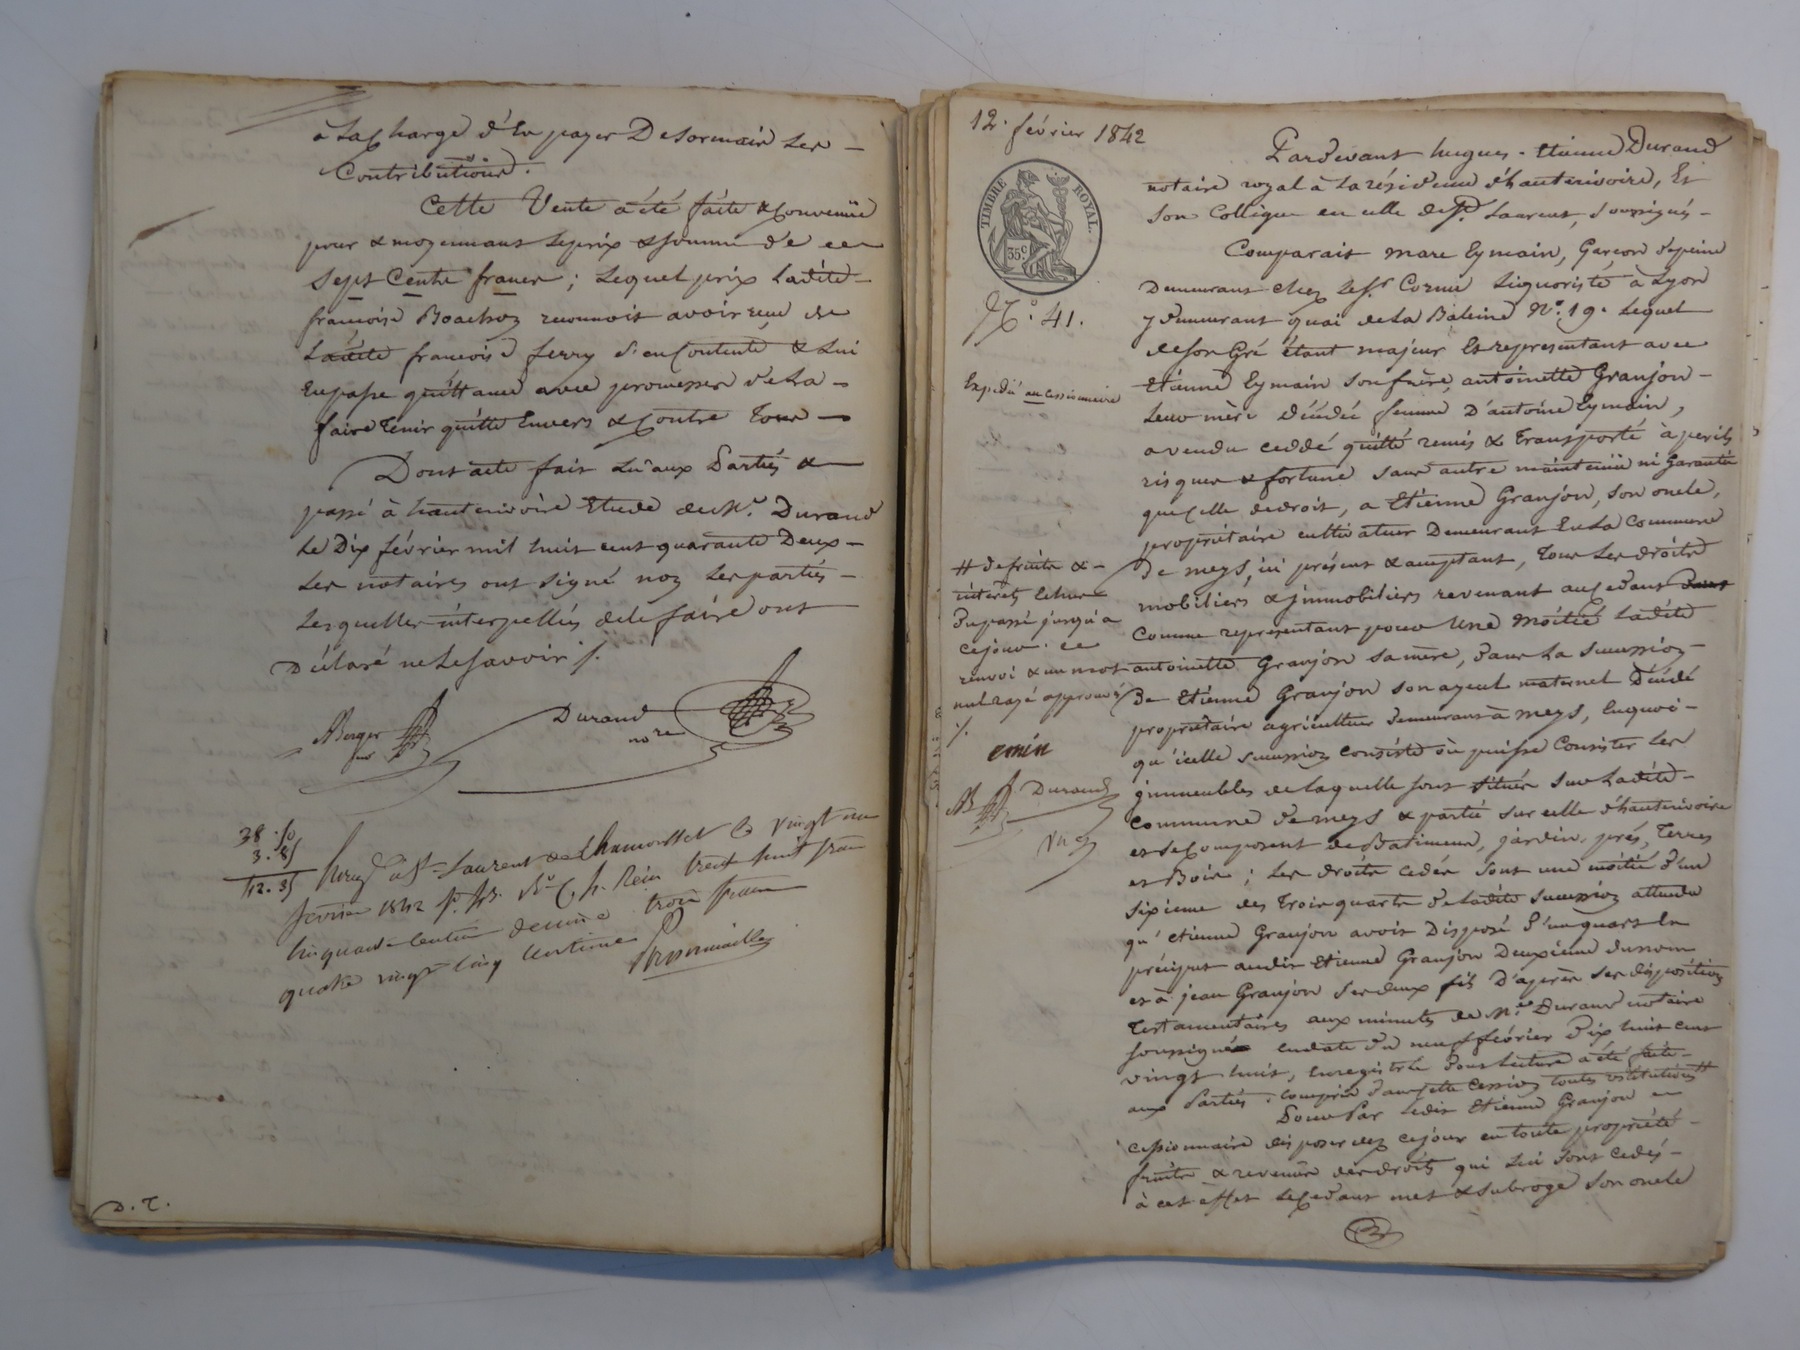 à la charge d'En payer Desormais Les
Contributions.
Cette Vente a été faite & convenüe
pour & moyennant le prix & somme de
Sept Cents francs ; Lequel prix Ladite
francoise reconnoit avoir reçu de
Ladite francoise ferry s'en Contente & Lui
En passe quittance avec promesse de La
faire Tenir quitte Envers & Contre Tous
Dont acte fait Lu aux Parties &
passé à hauterivoire Etude de Me. Durand
Le Dix février mil huit cent quarante Deux
Les notaires ont signé non Les parties
Lesquelles interpellées de le faire ont
Déclaré ne Le savoir ./.
Berger
Durand
nore
38.50
3.85
42.35
Enreg. à St. Laurent de Chamousset le vingt un
février 1842 f. Reçu trente huit francs
cinquante centimes decime trois francs
quatre vingt cinq centimes
D. T.
12. février 1842
TIMBRE ROYAL
35 c
No. 41.
Expédié au cessionnaire
Pardevant hugues - Etienne Durand
notaire royal à La résidence d'hauterivoire, Et
Son Collègue en celle de St. Laurent, soussignés -
Comparait marc Eymain, Garçon de peine
Demeurant chez le Sr. Liquoriste à Lyon
y demeurant quai de La Baleine No. 19. Lequel
de son Gré étant majeur Et representant avec
Etienne Eymain son frère, antoinette Granjon -
Leur mère décédée femme D'antoine Eymain,
a vendu ceddé quitté remis & Transporté à perils
risques & fortune sans autre maintenüe ni Garantie
que celle de droit, a Etienne Granjon, son oncle,
propriétaire cultivateur Demeurant En La Commune
de meys, ici présent & acceptant, Tous Les droits
mobiliers & jmmobiliers revenant au cedant dans
Comme representant pour Une moitié Ladite
antoinette Granjon sa mère, dans La succession
de Etienne Granjon son ayeul maternel Décédé
propriétaire agriculteur demeurant à meys, En quoi -
qu'icelle succession consiste ou puisse Consister Les
jmmeubles de laquelle sont situés sur Ladite -
Commune de meys & partie sur celle d'hauterivoire
et se Composent de Batimens, jardin, prés, Terres
et Bois ; Les droits cedés sont une moitié d'un
sixieme des Trois quarts de Ladite succession attendu
qu'etienne Granjon avoit Disposé d'un quart En
préciput audit Etienne Granjon Deuxieme du nom
et à jean Granjon ses deux fils D'après ses dispositions
Testamentaires aux minutes de Me. Durand notaire
soussigné en date du neuf février dix huit cent
vingt huit, Enregistrée dont Lecture a été faite -
aux Parties. compris dans cette cession toutes restitutions #
Pour Par Ledit Etienne Granjon en
cessionnaire disposer dez ce jour en toute propriété -
fruits & revenus des droits qui Lui sont cedés -
à cet effet Le cedant met & subroge son oncle
# de fruits & -
intérêts Echus
du passé jusqu'à
ce jour. ce
renvoi & un mot
nul rayé approuvés
./.
emin
Durand